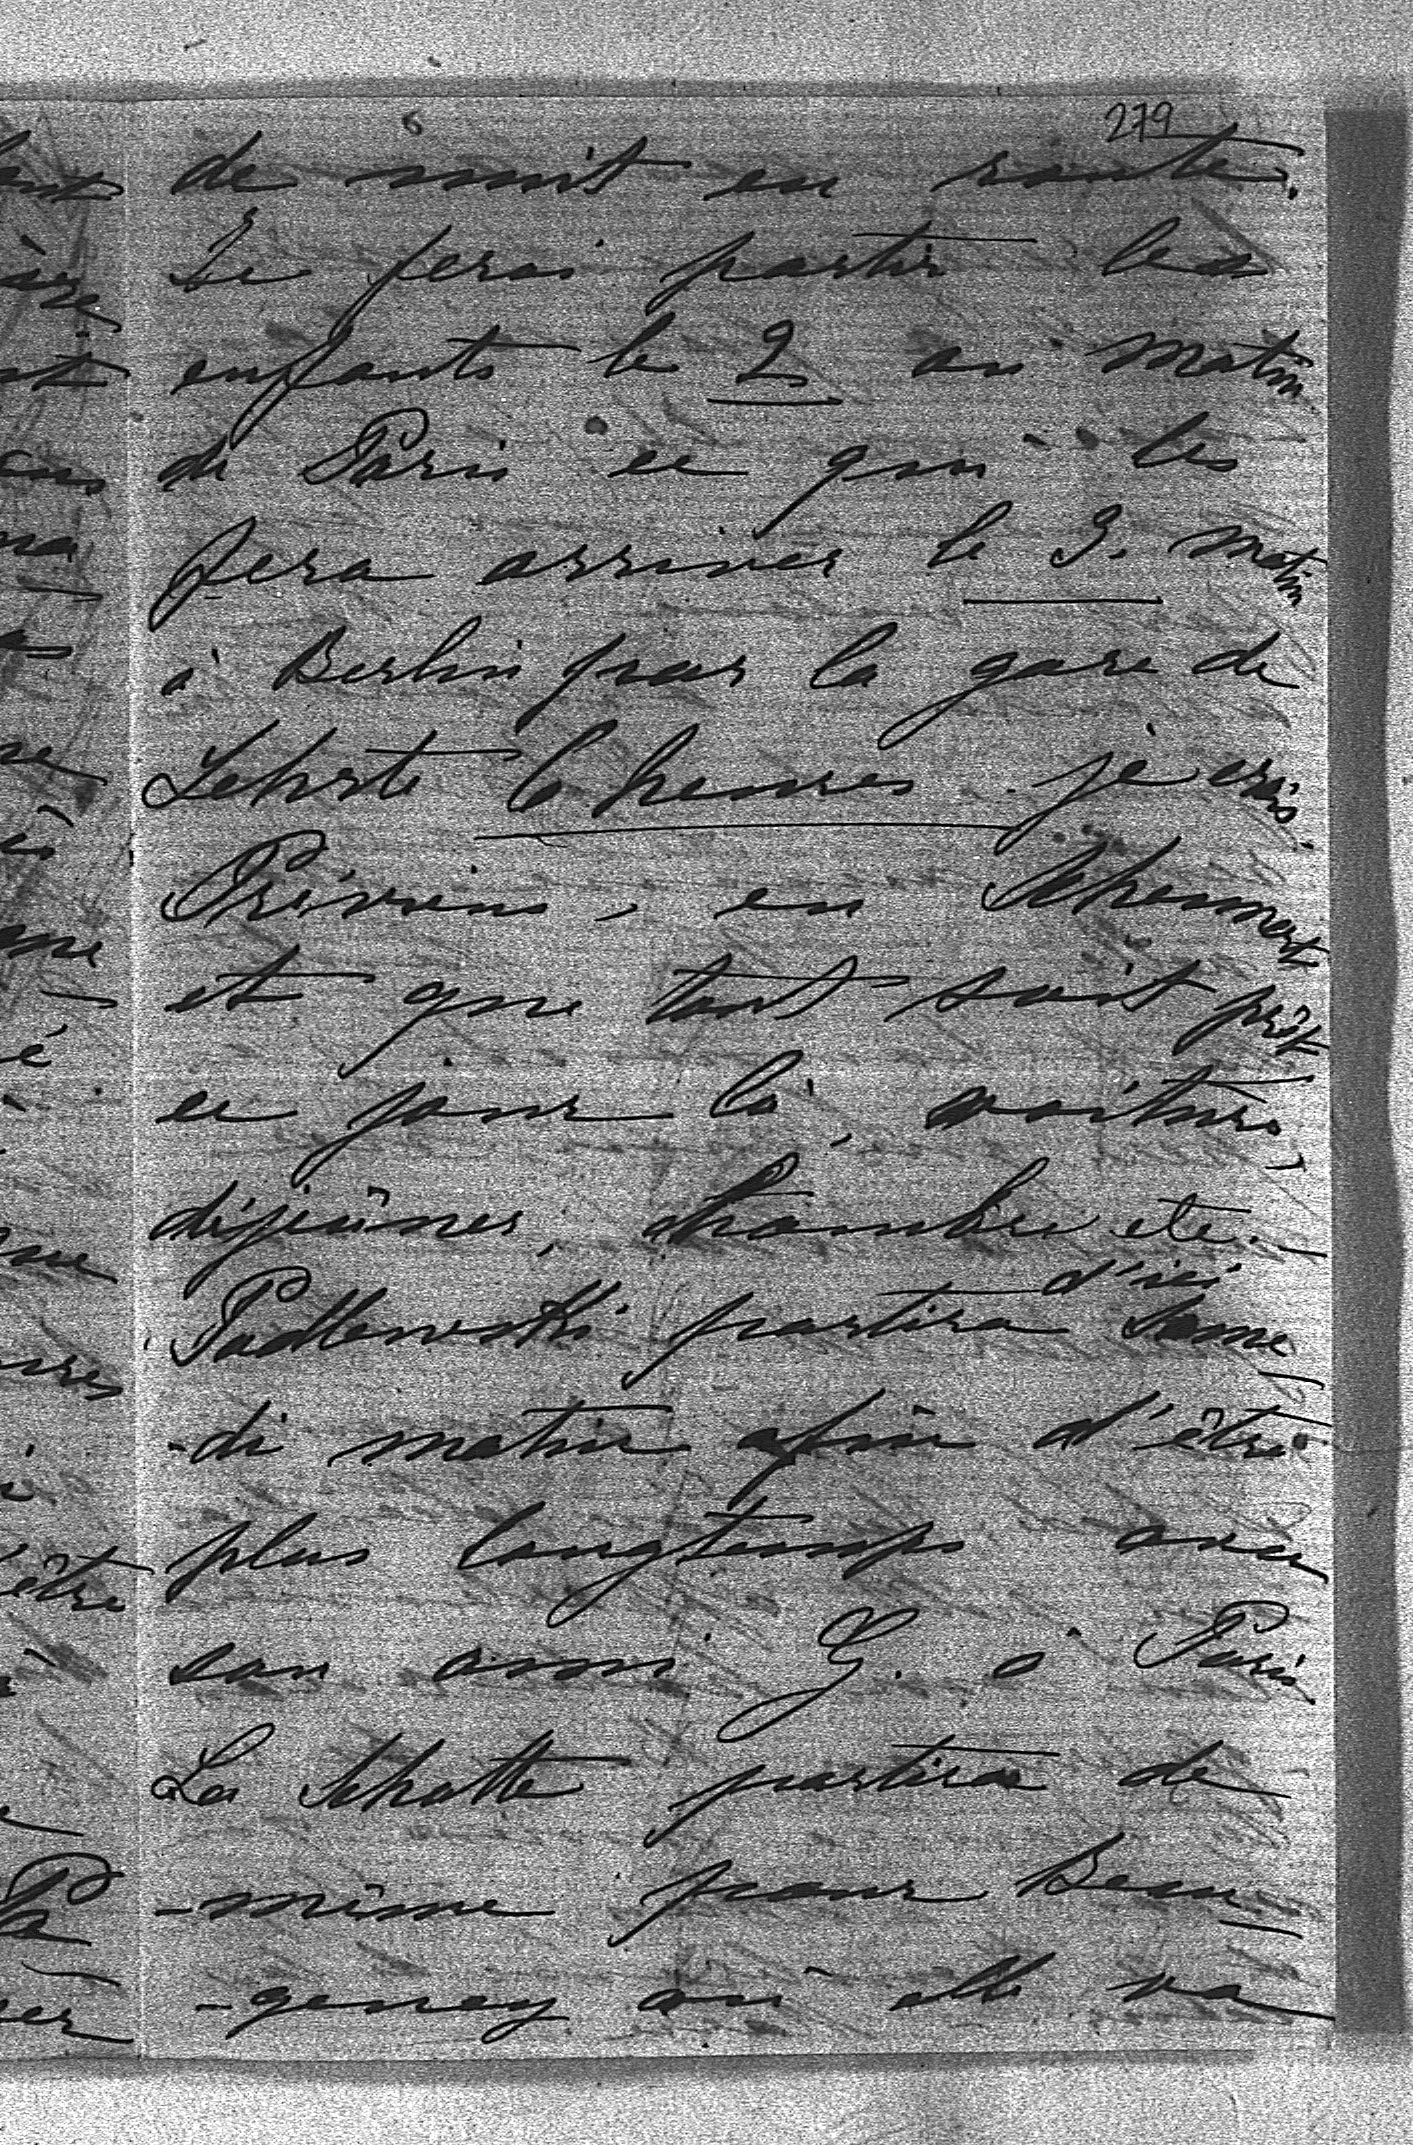 279
de nuit en route.
Je ferai partir les
enfants le 2 au matin
de Paris ce qui les
fera arriver le 3. matin
à Berlin par la gare de
Lehrte 6 heures je crois
Préviens, en
et que tout soit prêt
ce jour là, voiture,
déjeûner, chambre etc.
d'ici
Padlewski partira Same
-di matin afin d'être
plus longtemps avec
son ami G. à Paris
La Schotte partira de
-même pour Beau-
-gency où elle va